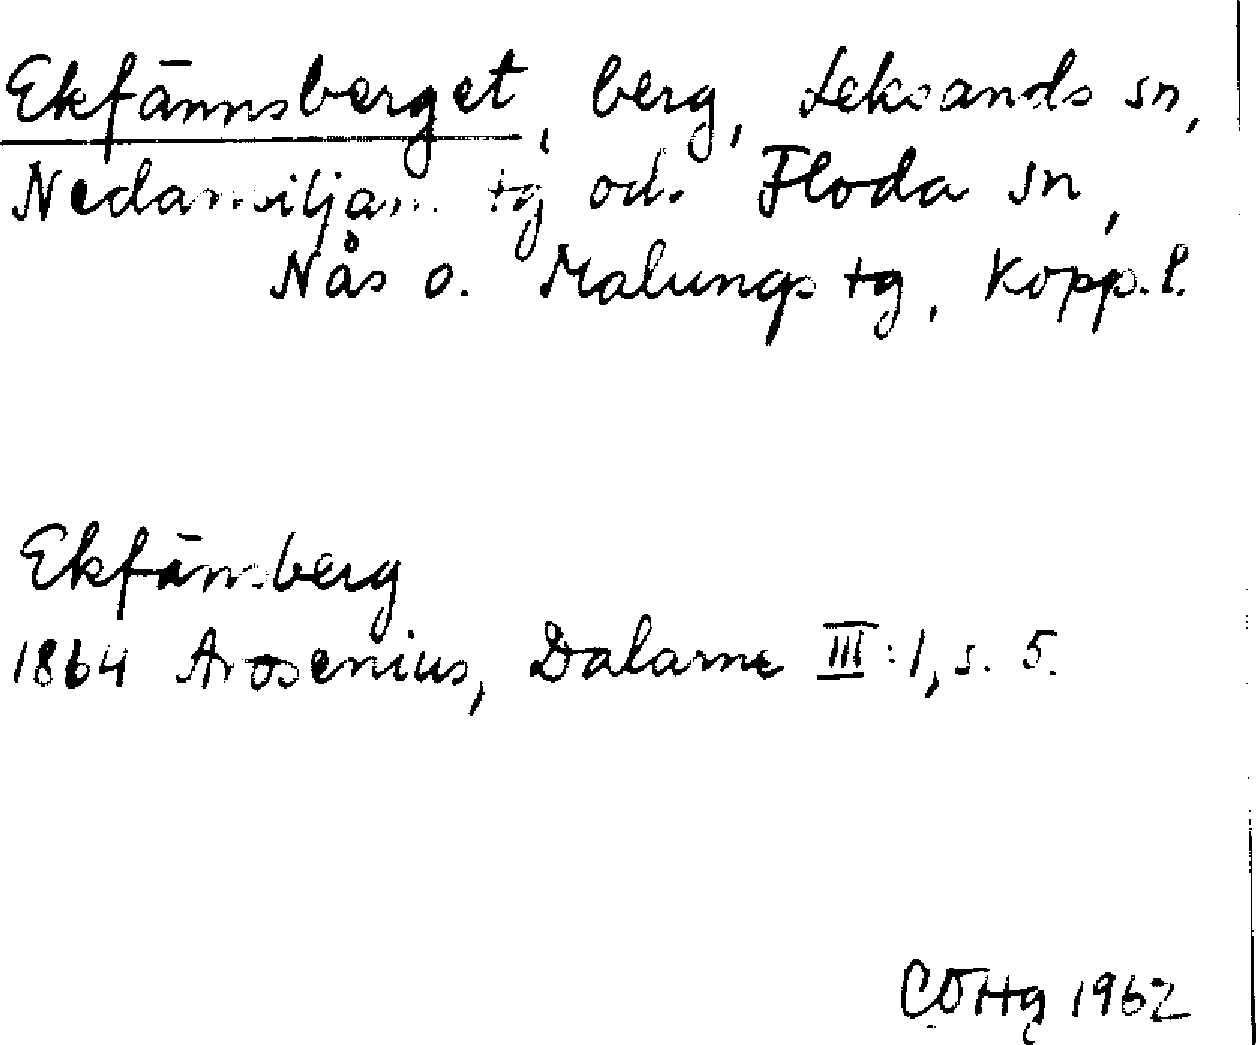 Ekfännsberget, berg, Leksands sn,
Nedansiljans tg och Floda sn,
Nås o. Malungs tg, Kopp. l.
Ekfännsberg
1864 Arosenius, Dalarne III:1, s. 5.
1962